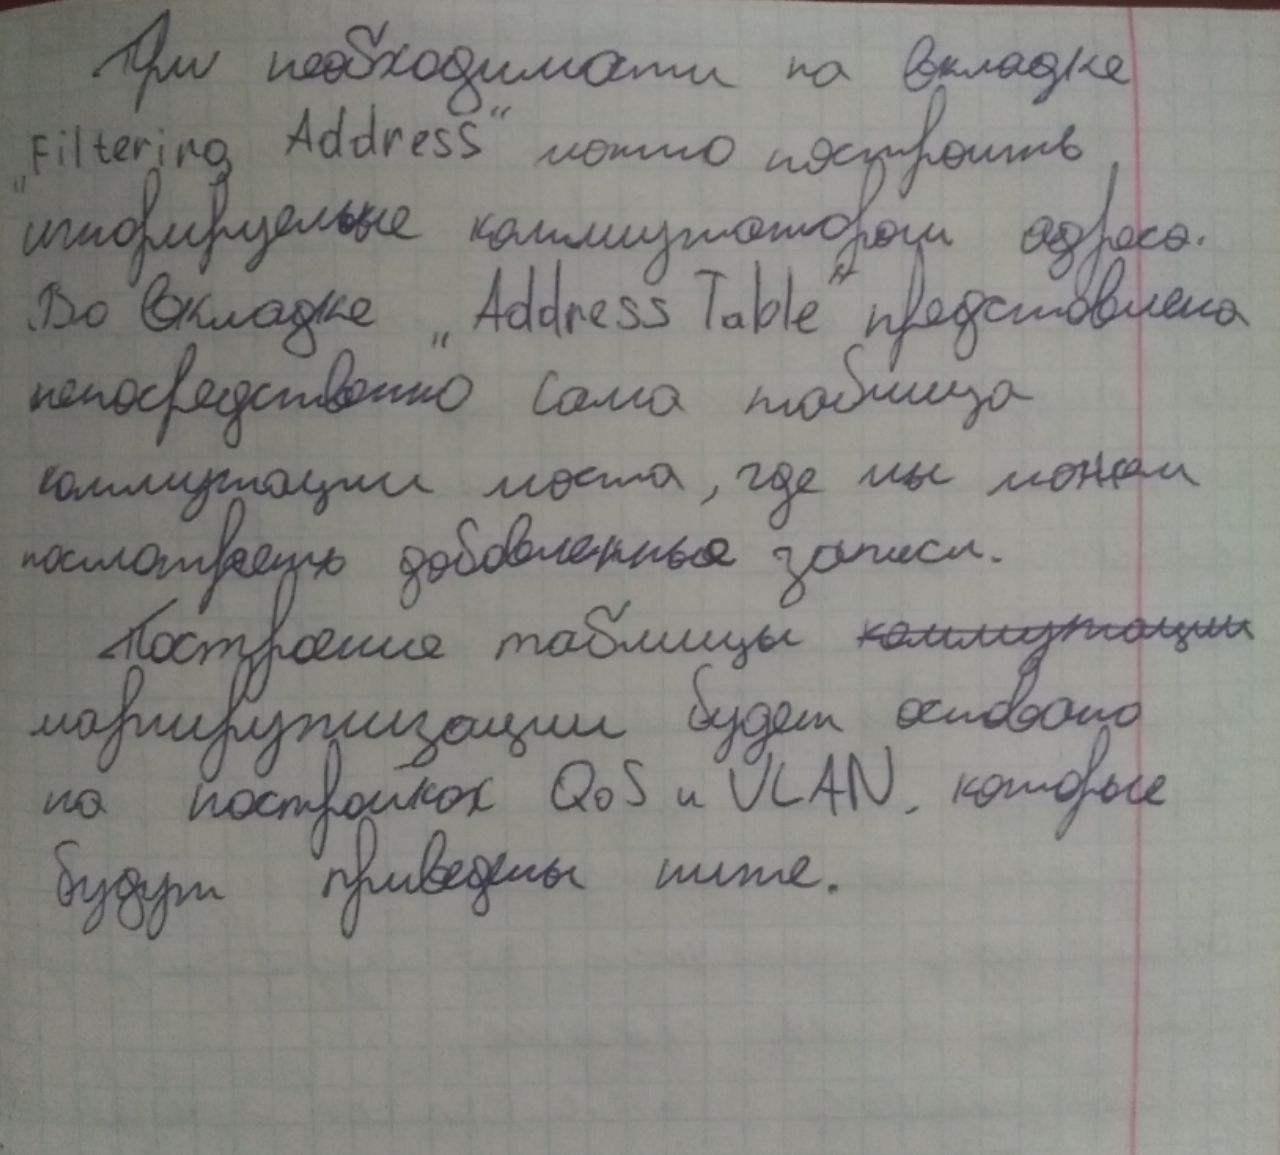 При необходимости на вкладке
„Filtering Address“ можно настроить
игнорируемые коммутатором адреса.
Во вкладке „Address Table“ представлена
непосредственно сама таблица
коммутации моста, где мы можем
посмотреть добавленные записи.
Построение таблицы коммутации
маршрутизации будет основано
на настройках QoS и VLAN, которые
будут приведены ниже.